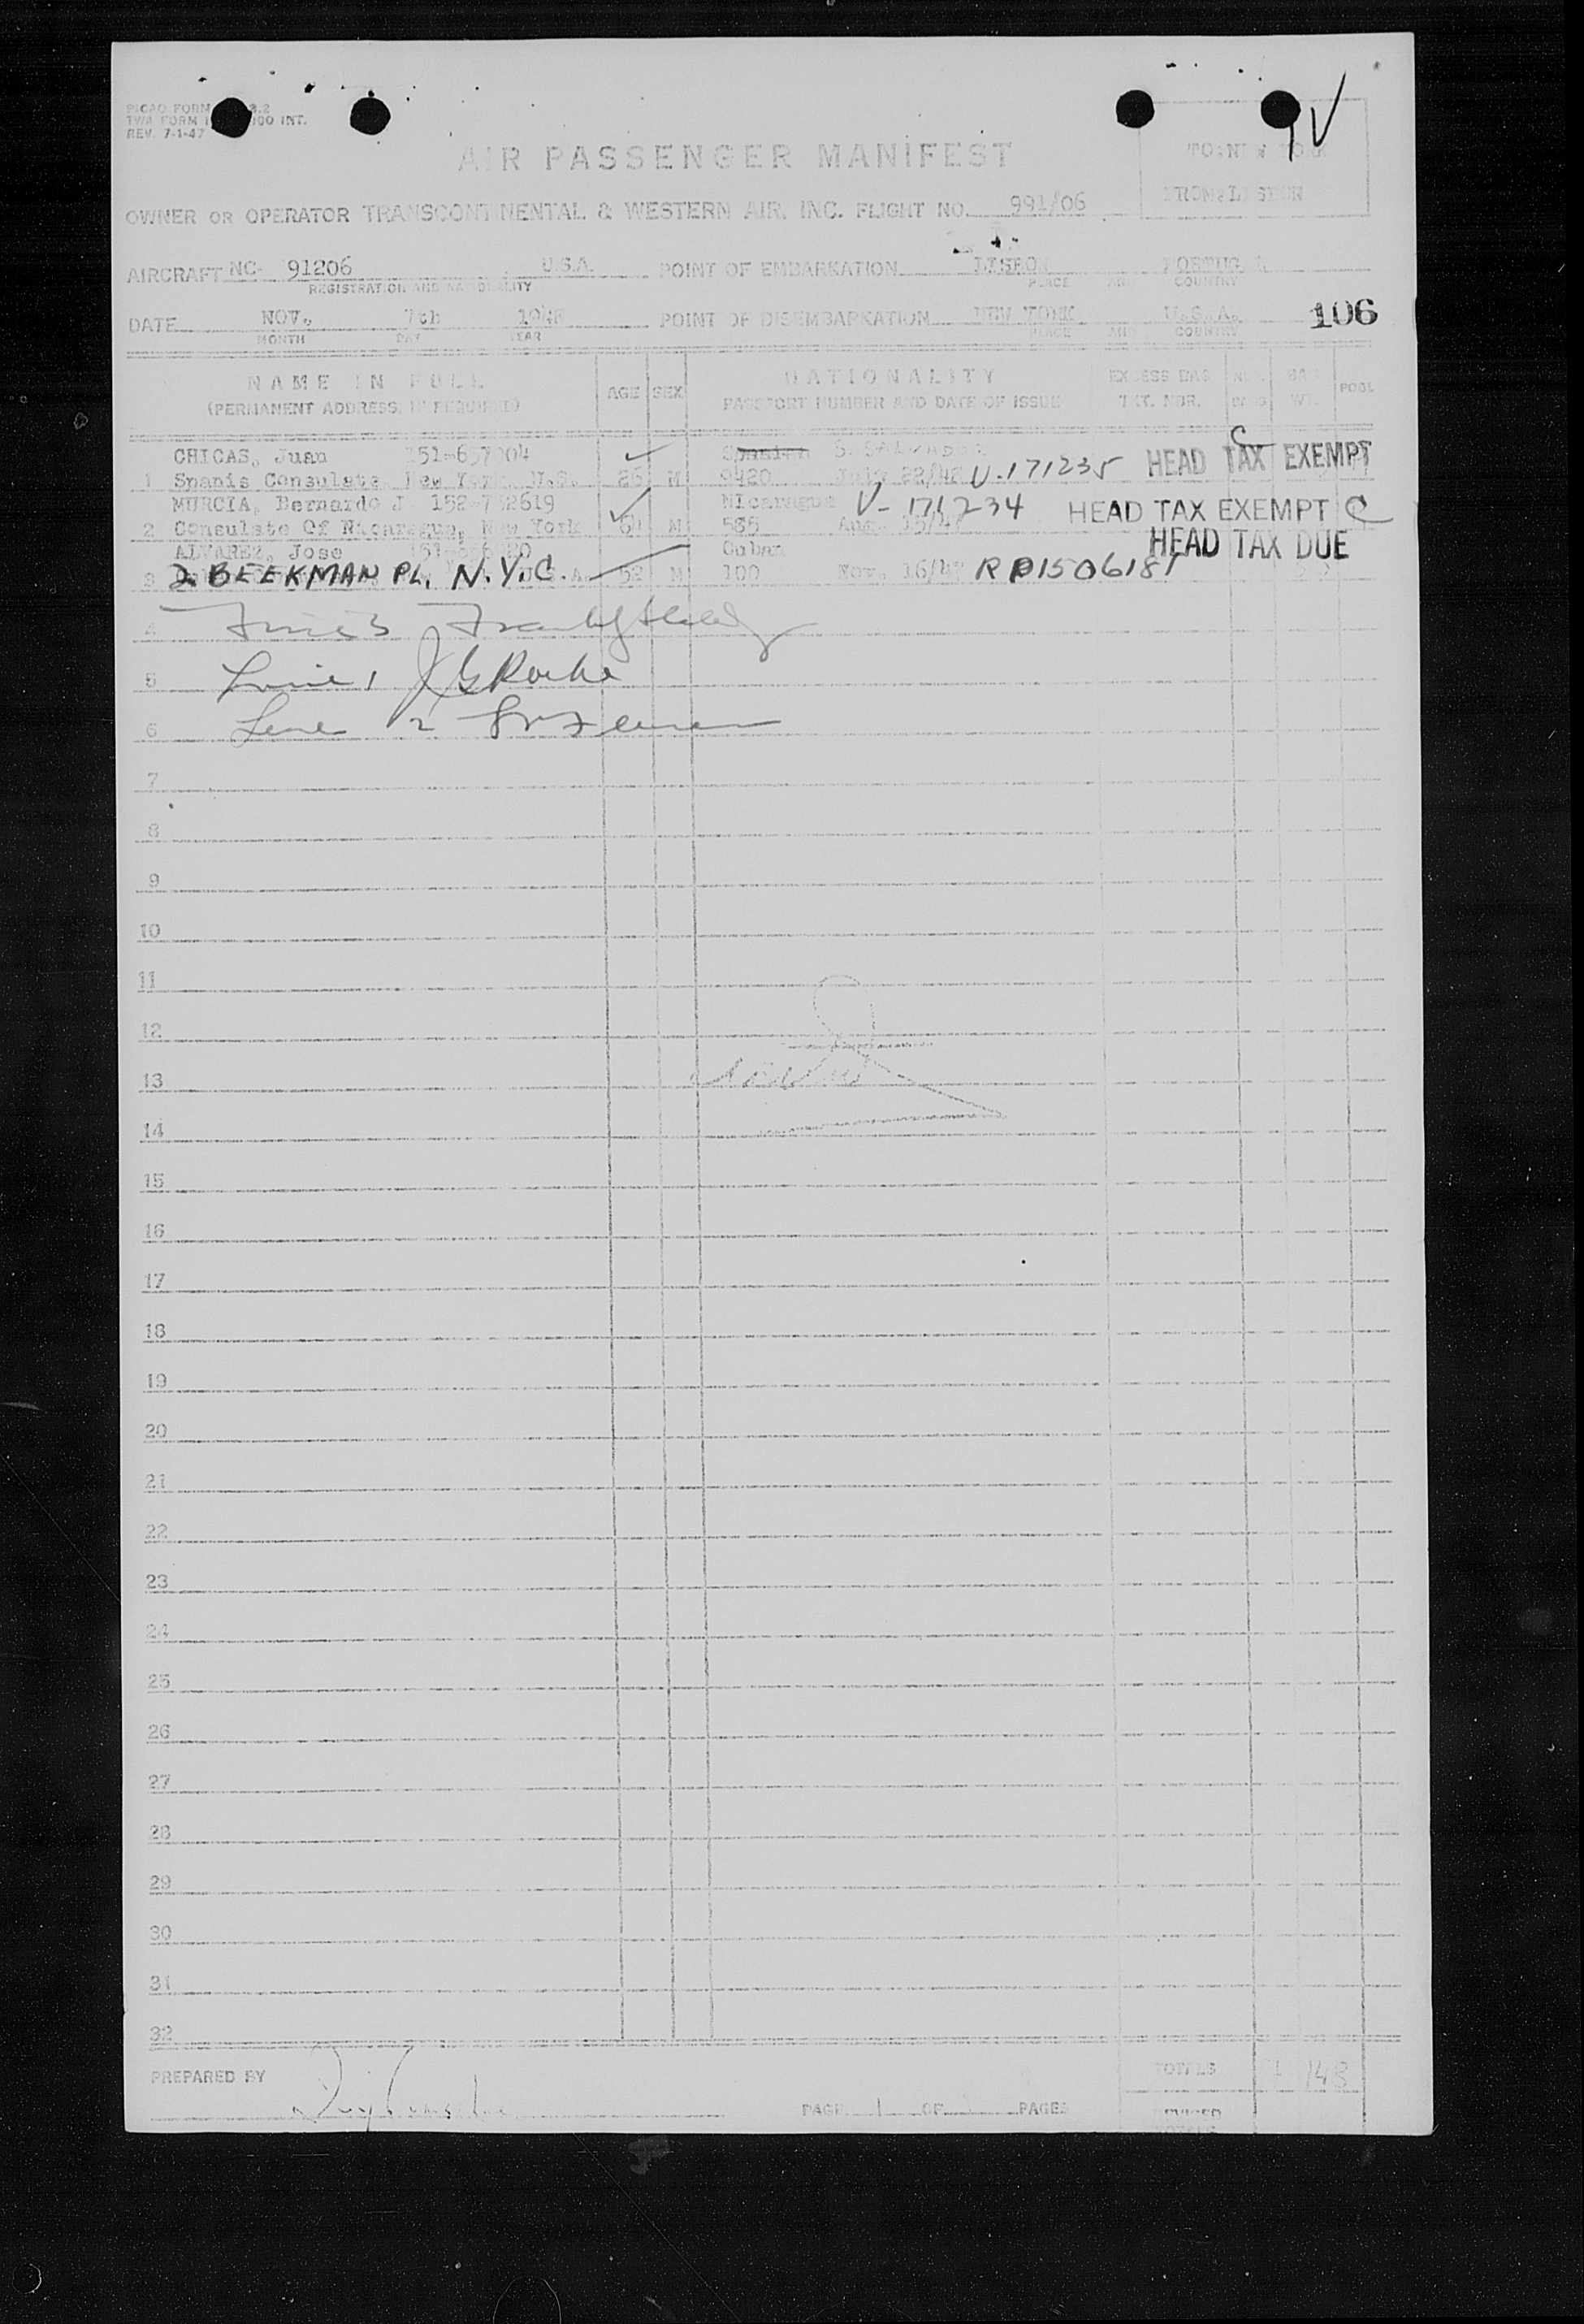 PICAO FORM 3.2
TWA FORM 100 INT.
REV. 7-1-47
AIR PASSENGER MANIFEST
TO: NEW YORK
FROM: LISBON
OWNER OR OPERATOR TRANSCONTINENTAL & WESTERN AIR, INC. FLIGHT NO. 991/06
AIRCRAFT NC- 91206 U.S.A. POINT OF EMBARKATION LISBON PORTUGAL
REGISTRATION AND NATIONALITY PLACE AND COUNTRY
DATE NOV. 7th 1948 POINT OF DISEMBARKATION NEW YORK U.S.A. 106
MONTH DAY YEAR PLACE AND COUNTRY
NAME IN FULL AGE SEX NATIONALITY EXCESS BAG. NO. BAG. POOL
(PERMANENT ADDRESS, IF REQUIRED) PASSPORT NUMBER AND DATE OF ISSUE TKT. NBR. BAGS WT.
CHICAS, Juan Spanish S. SALVADOR
1 Spanis Consulate New York U.S. 26 M 9420 July 22/48 V-171235 HEAD TAX EXEMPT C
MURCIA, Bernardo J 152-752619 NIcaragua V-171234 HEAD TAX EXEMPT C
2 Consulate Of Nicaragua, New York M 585 Aug. 15/47
ALVAREZ, Jose Cuban HEAD TAX DUE
3 2 BEEKMAN PL. N.Y.C. 52 M 100 Nov. 16/47 RP1506181
4 Line 3
5 Line 1 J G Rourke
6 Line 2
7
8
9
10
11
12
13
14
15
16
17
18
19
20
21
22
23
24
25
26
27
28
29
30
31
32
PREPARED BY TOTALS 148
PAGE 1 OF PAGES